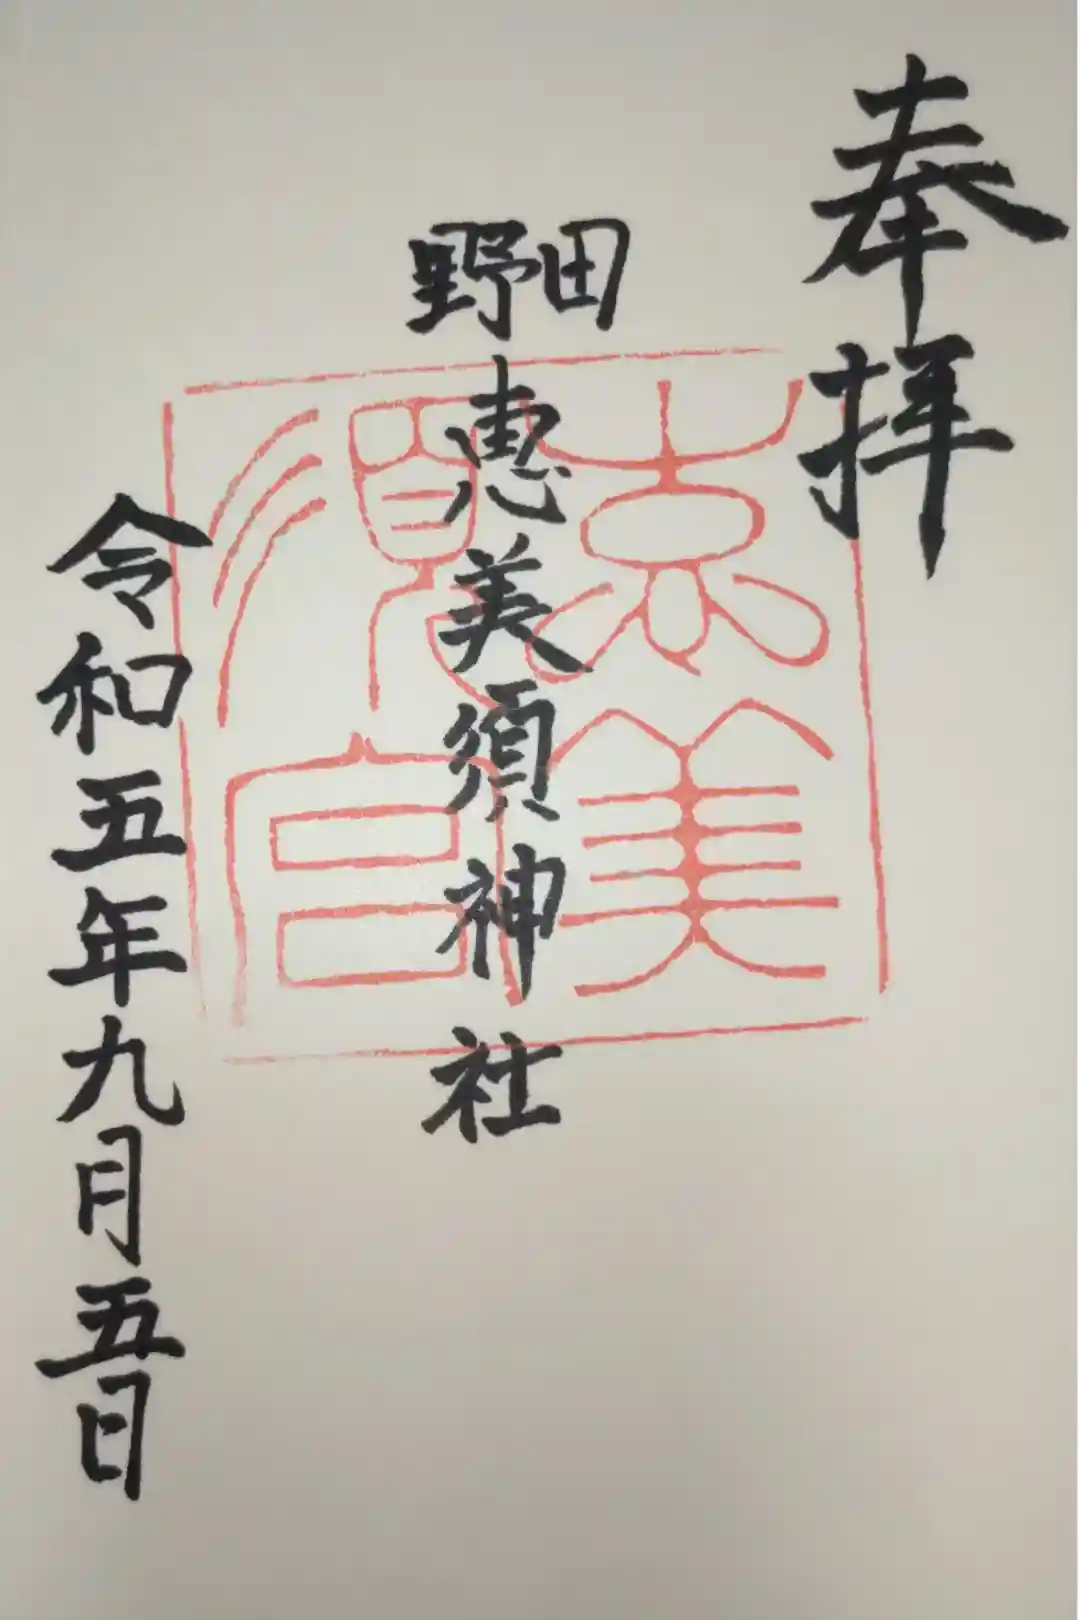 奉拝
野田
恵美須神社
令和五年九月五日
美
須宮